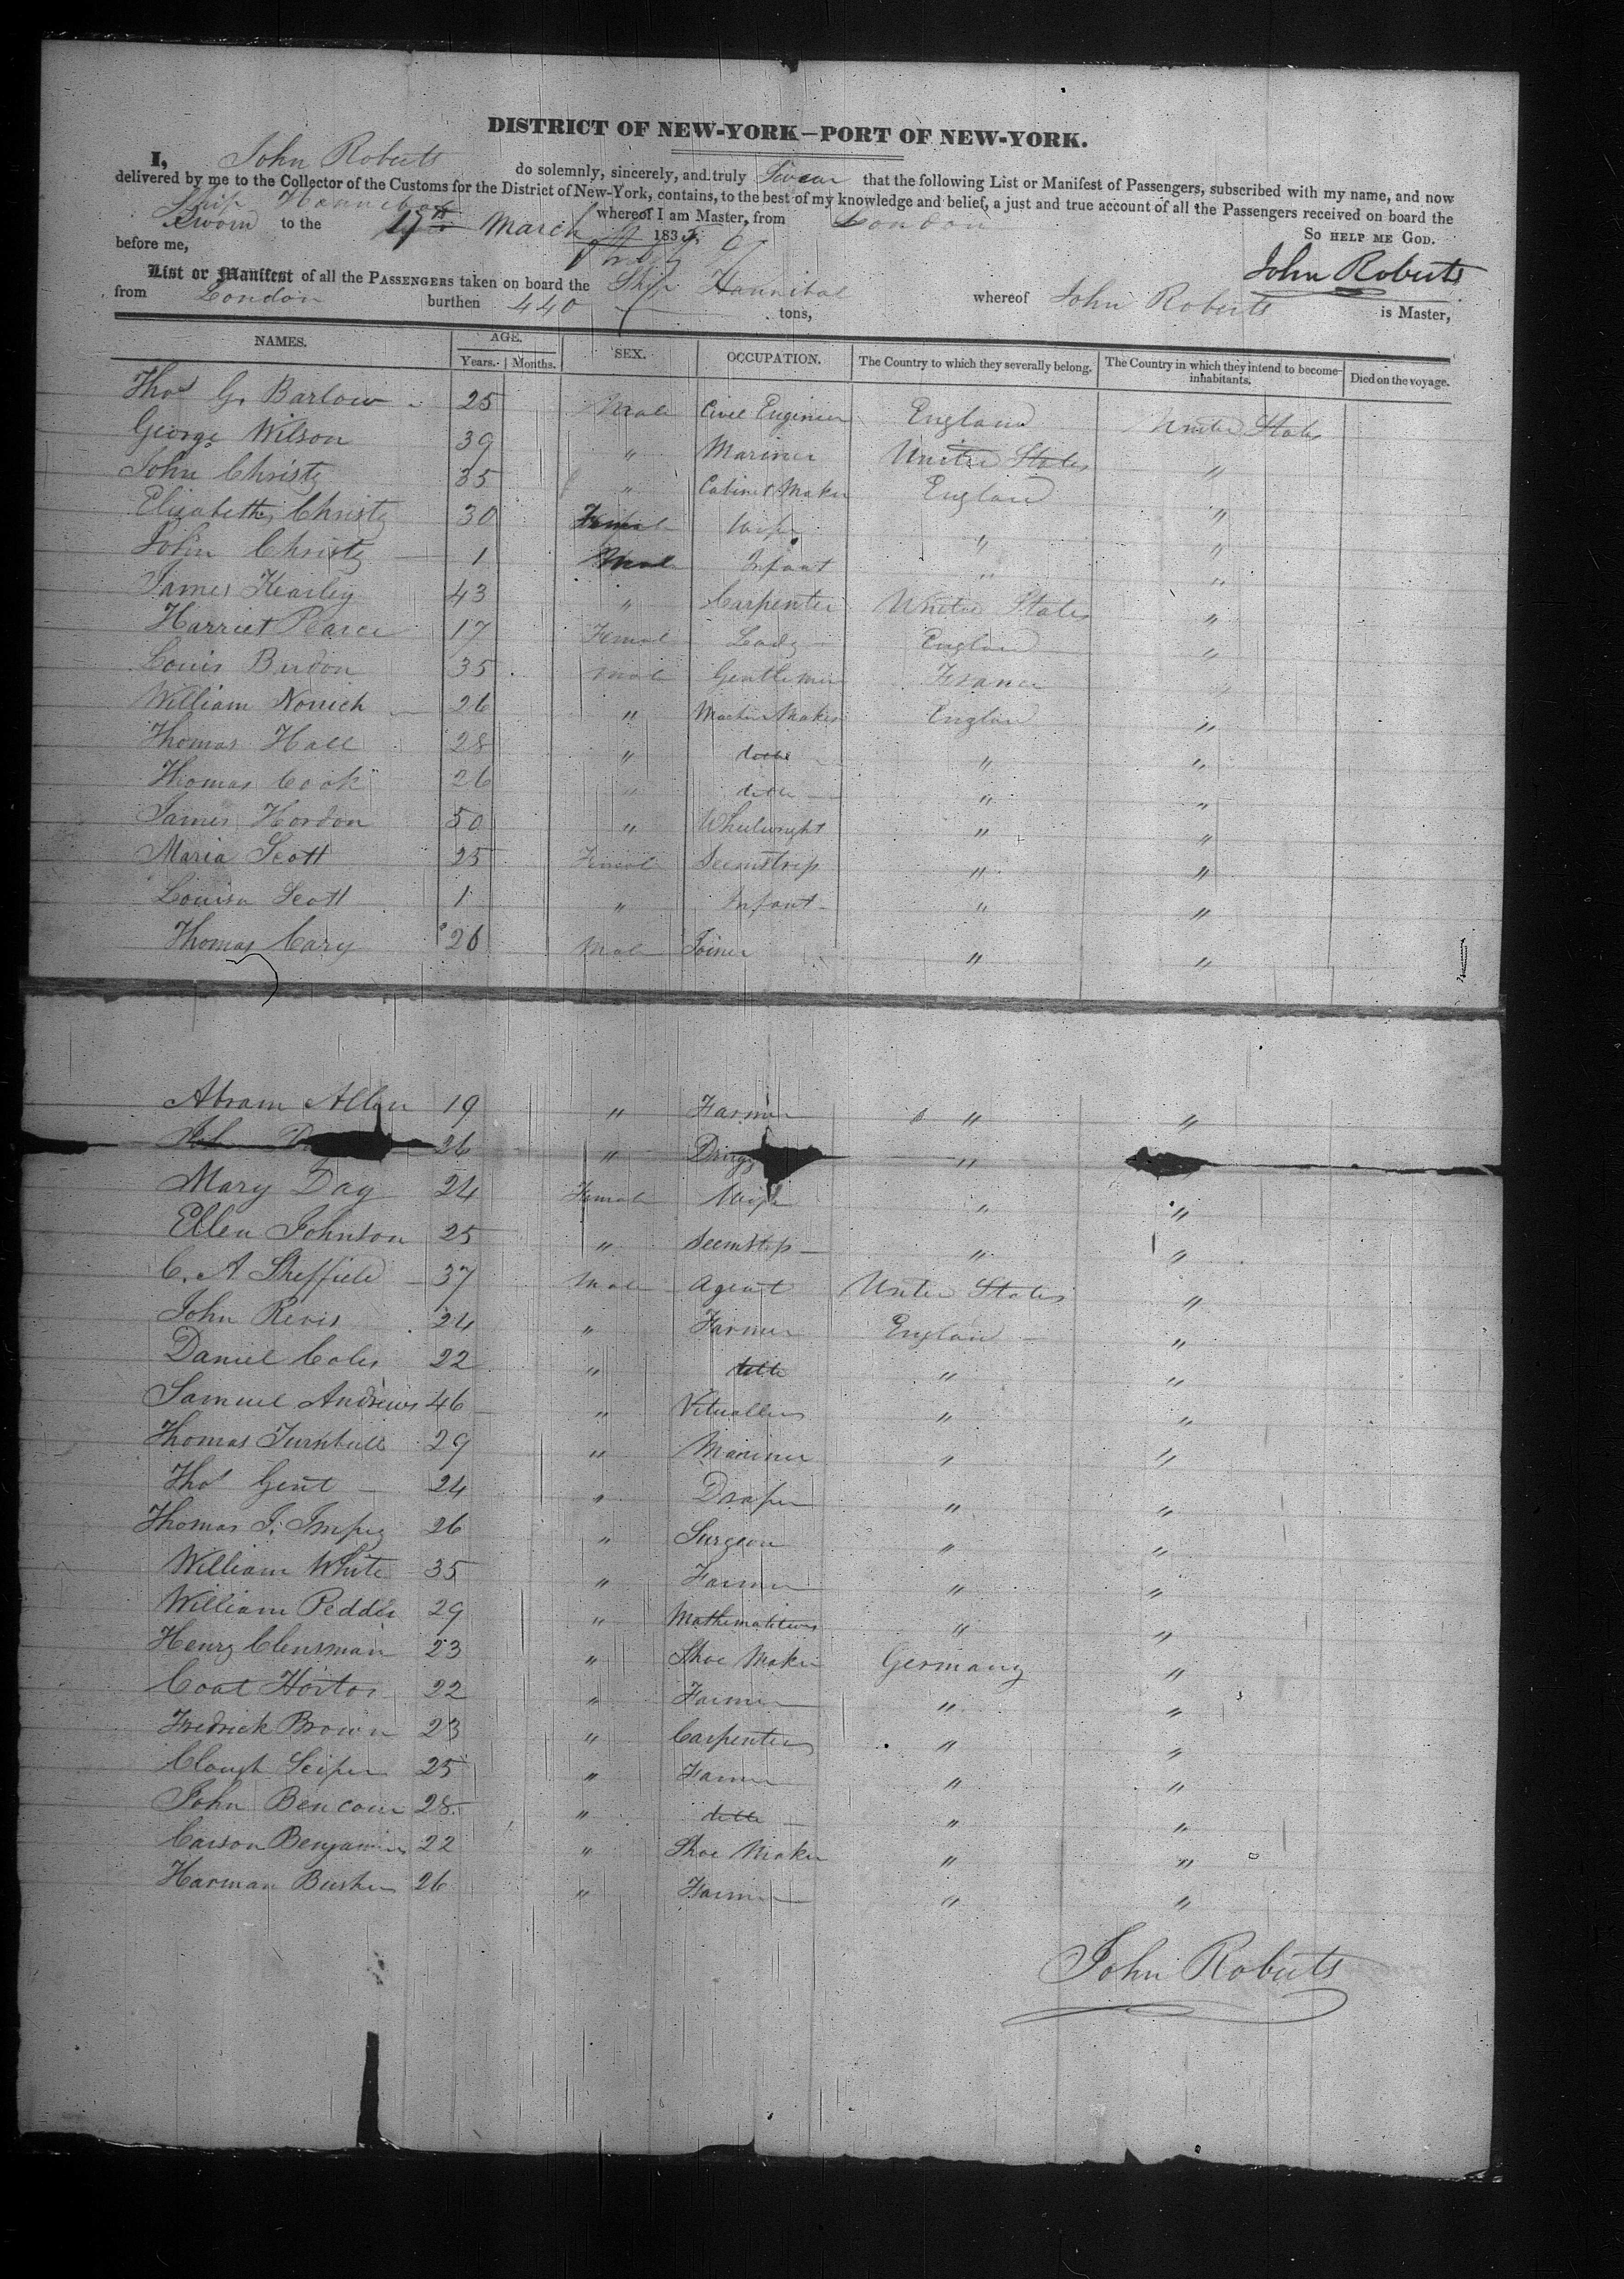 DISTRICT OF NEW-YORK—PORT OF NEW-YORK.
I, John Roberts do solemnly, sincerely, and truly Swear that the following List or Manifest of Passengers, subscribed with my name, and now
delivered by me to the Collector of the Customs for the District of New-York, contains, to the best of my knowledge and belief, a just and true account of all the Passengers received on board the
Ship Hannibal whereof I am Master, from London
Sworn to the 17th March 183 So HELP ME GOD.
before me, John Roberts
List or Manifest of all the PASSENGERS taken on board the Ship Hannibal whereof John Roberts is Master,
from London burthen 440 tons,
NAMES. AGE. SEX. OCCUPATION. The Country to which they severally belong. The Country in which they intend to become inhabitants. Died on the voyage.
Years. Months.
Thos G. Barlow 25 Male Civil Engineer England United States
George Wilson 39 " Mariner United States "
John Christy 35 " Cabinet Maker England "
Elizabeth Christy 30 Female Wife " "
John Christy 1 Male Infant " "
James Kearley 43 " Carpenter United States "
Harriet Pearce 17 Female Lady England "
Louis Burdon 35 Male Gentleman France "
William Norrich 26 " Maker England "
Thomas Hall 28 " ditto " "
Thomas Cook 26 " ditto " "
James Hordon 50 " Wheelwright " "
Maria Scott 25 Female Seemstress " "
Louisa Scott 1 " Infant " "
Thomas Cary 26 Male Joiner " "
Abram Allen 19 " Farmer " "
26 " "
Mary Day 24 Female Wife " "
Ellen Johnson 25 " Seemstress " "
C. A Sheffield 37 Male Agent United States "
John Revis 24 " Farmer England "
Daniel Coles 22 " ditto " "
Samuel Andrews 46 " Vitualler " "
Thomas Turnbull 29 " Mariner " "
Thos Gent 24 " Draper " "
Thomas J. Impey 26 " Surgeon " "
William White 35 " Farmer " "
William Pedder 29 " " "
Henry Clensman 23 " Shoe Maker Germany "
Coat Hortor 22 " Farmer " "
Fredrick Brown 23 " Carpenter " "
Clough Seiper 25 " Farmer " "
John Bencour 28 " ditto " "
Carson Benjamin 22 " Shoe Maker " "
Harman Busher 26 " Farmer " "
John Roberts